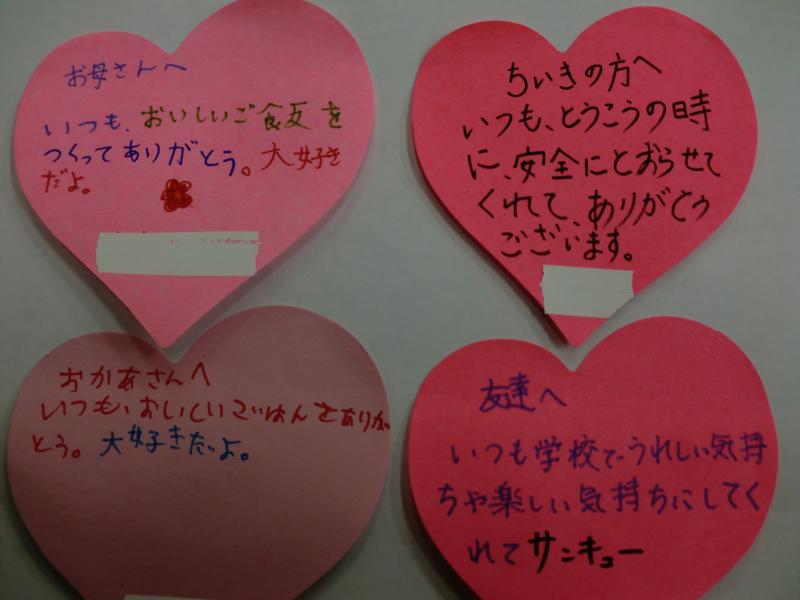 お母さんへ
いつも、おいしいご食反を
つくってありがとう。大好き
だよ。
ちいきの方へ
いつも、とうこうの時
に、安全にとおらせて
くれて、ありがとぅ
ございます。
おかあさんへ
いつも、おいしいごはんをありが
とう。大好きだよ。
友達へ
いつも学校でうれしい気持
ちや楽しい気持ちにしてく
れてサンキュー